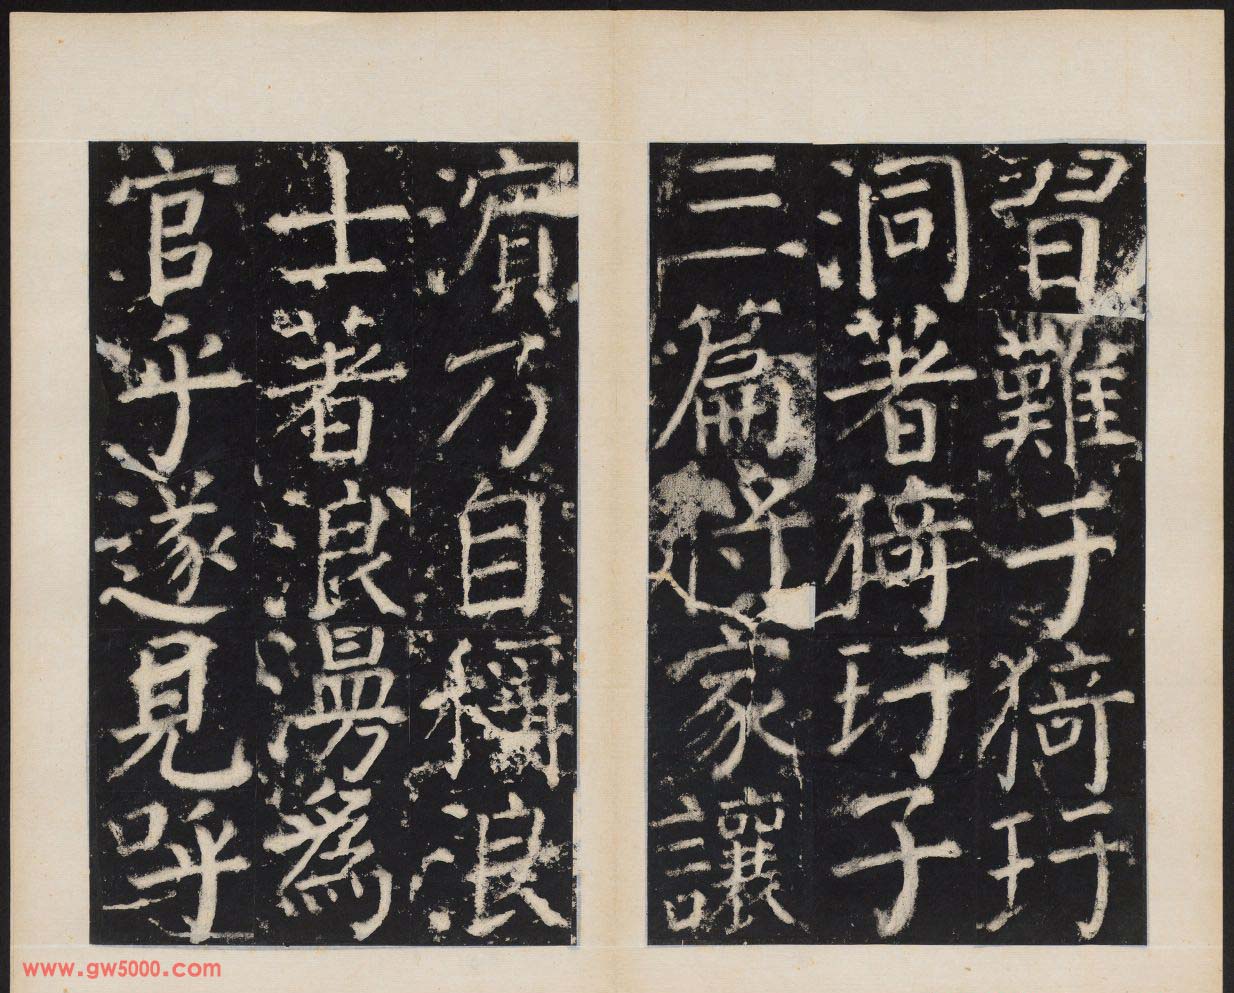 習難于猗玗
洞著猗玗子
三篇将家讓
濱乃自稱浪
士著浪漫為
官乎遂見呼
www.gw5000.com